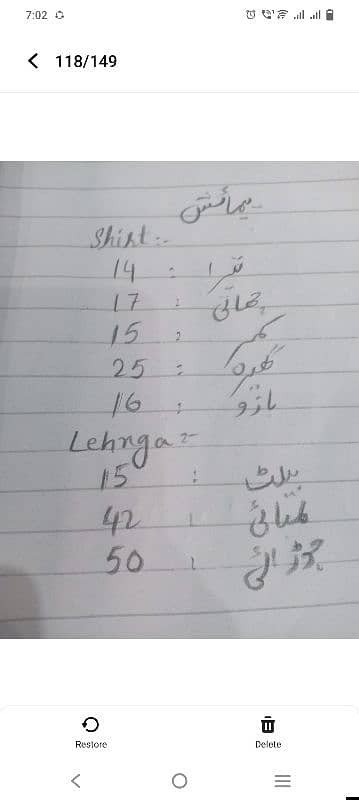 7:02
118/149
پیمائش
Shirt:-
تیرا : 14
چھاتی : 17
کمر : 15
گھیرہ : 25
بازو : 16
Lehnga :-
بیلٹ : 15
لمبائی : 42
چوڑائی : 50
Restore
Delete